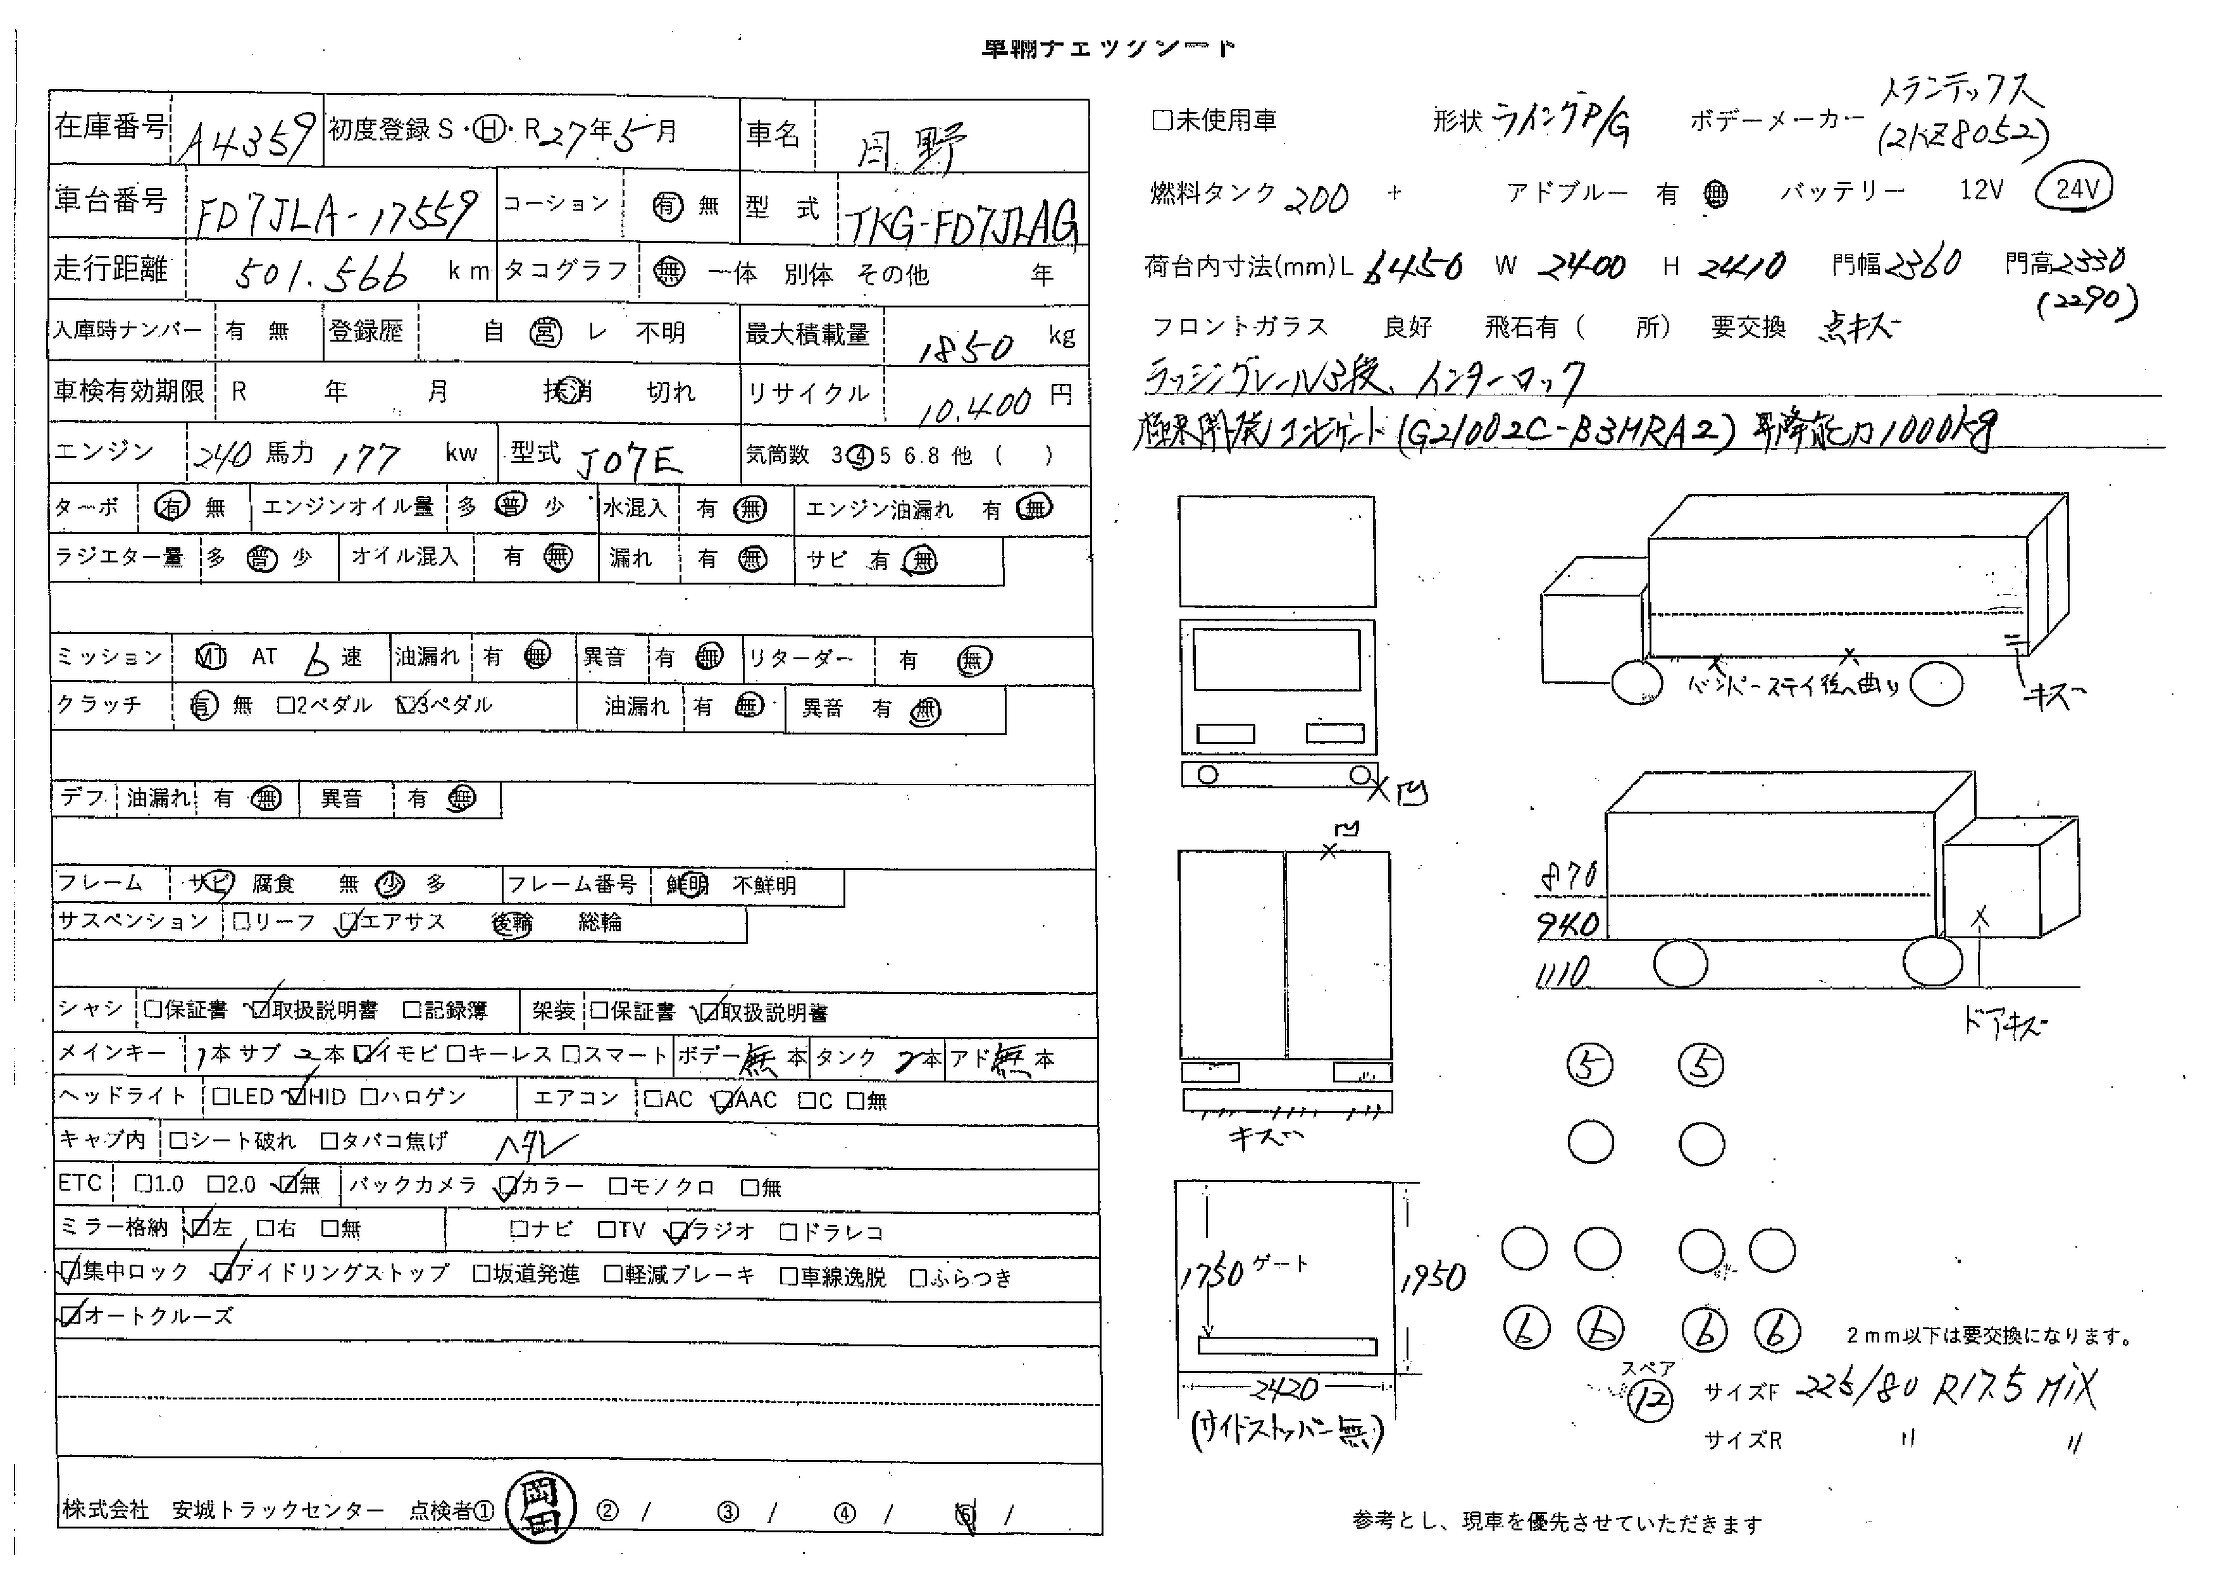 車輌チェックシート
在庫番号 A4359 初度登録 S・H・R 27年 5月 車名 日野
車台番号 FD7JLA-17559 コーション 有 無 型 式 TKG-FD7JLAG
走行距離 501.566 km タコグラフ 無 一体 別体 その他 年
入庫時ナンバー 有 無 登録歴 自 営 レ 不明 最大積載量 1850 kg
車検有効期限 R 年 月 抹消 切れ リサイクル 10.400 円
エンジン 240 馬力 177 kw 型式 J07E 気筒数 3 4 5 6.8 他 ( )
ターボ 有 無 エンジンオイル量 多 普 少 水混入 有 無 エンジン油漏れ 有 無
ラジエター量 多 普 少 オイル混入 有 無 漏れ 有 無 サビ 有 無
ミッション MT AT 6 速 油漏れ 有 無 異音 有 無 リターダー 有 無
クラッチ 有 無 □2ペダル ☑3ペダル 油漏れ 有 無 異音 有 無
デフ 油漏れ 有 無 異音 有 無
フレーム サビ 腐食 無 少 多 フレーム番号 鮮明 不鮮明
サスペンション □リーフ ☑エアサス 後輪 総輪
シャシ □保証書 ☑取扱説明書 □記録簿 架装 □保証書 ☑取扱説明書
メインキー 1本 サブ 2本 ☑イモビ □キーレス □スマート ボデー 無 本 タンク 2本 アド 無 本
ヘッドライト □LED ☑HID □ハロゲン エアコン □AC ☑AAC □C □無
キャブ内 □シート破れ □タバコ焦げ ヘタレ
ETC □1.0 □2.0 ☑無 バックカメラ ☑カラー □モノクロ □無
ミラー格納 ☑左 □右 □無 □ナビ □TV ☑ラジオ □ドラレコ
☑集中ロック ☑アイドリングストップ □坂道発進 □軽減ブレーキ □車線逸脱 □ふらつき
☑オートクルーズ
株式会社 安城トラックセンター 点検者① 岡田 ② / ③ / ④ / ⑤ /
□未使用車 形状 ウイングP/G ボデーメーカー トランテックス
(2KZ8052)
燃料タンク 200 + アドブルー 有 無 バッテリー 12V 24V
荷台内寸法(mm) L 6450 W 2400 H 2410 門幅 2360 門高 2330
(2290)
フロントガラス 良好 飛石有 ( 所) 要交換 点キズ
ラッシングレール3段、インターロック
極東開発パワーゲート (G21002C-B3MRA2) 昇降能力1000kg
バンパーステイ後へ曲り
キズ
凹
凹
870
940
1110
ドアキズ
キズ
5 5
1750 ゲート 1950
6 6 6 6 2mm以下は要交換になります。
スペア
2420 12 サイズF 225/80 R17.5 MIX
(サイドストッパー無)
サイズR 〃 〃
参考とし、現車を優先させていただきます